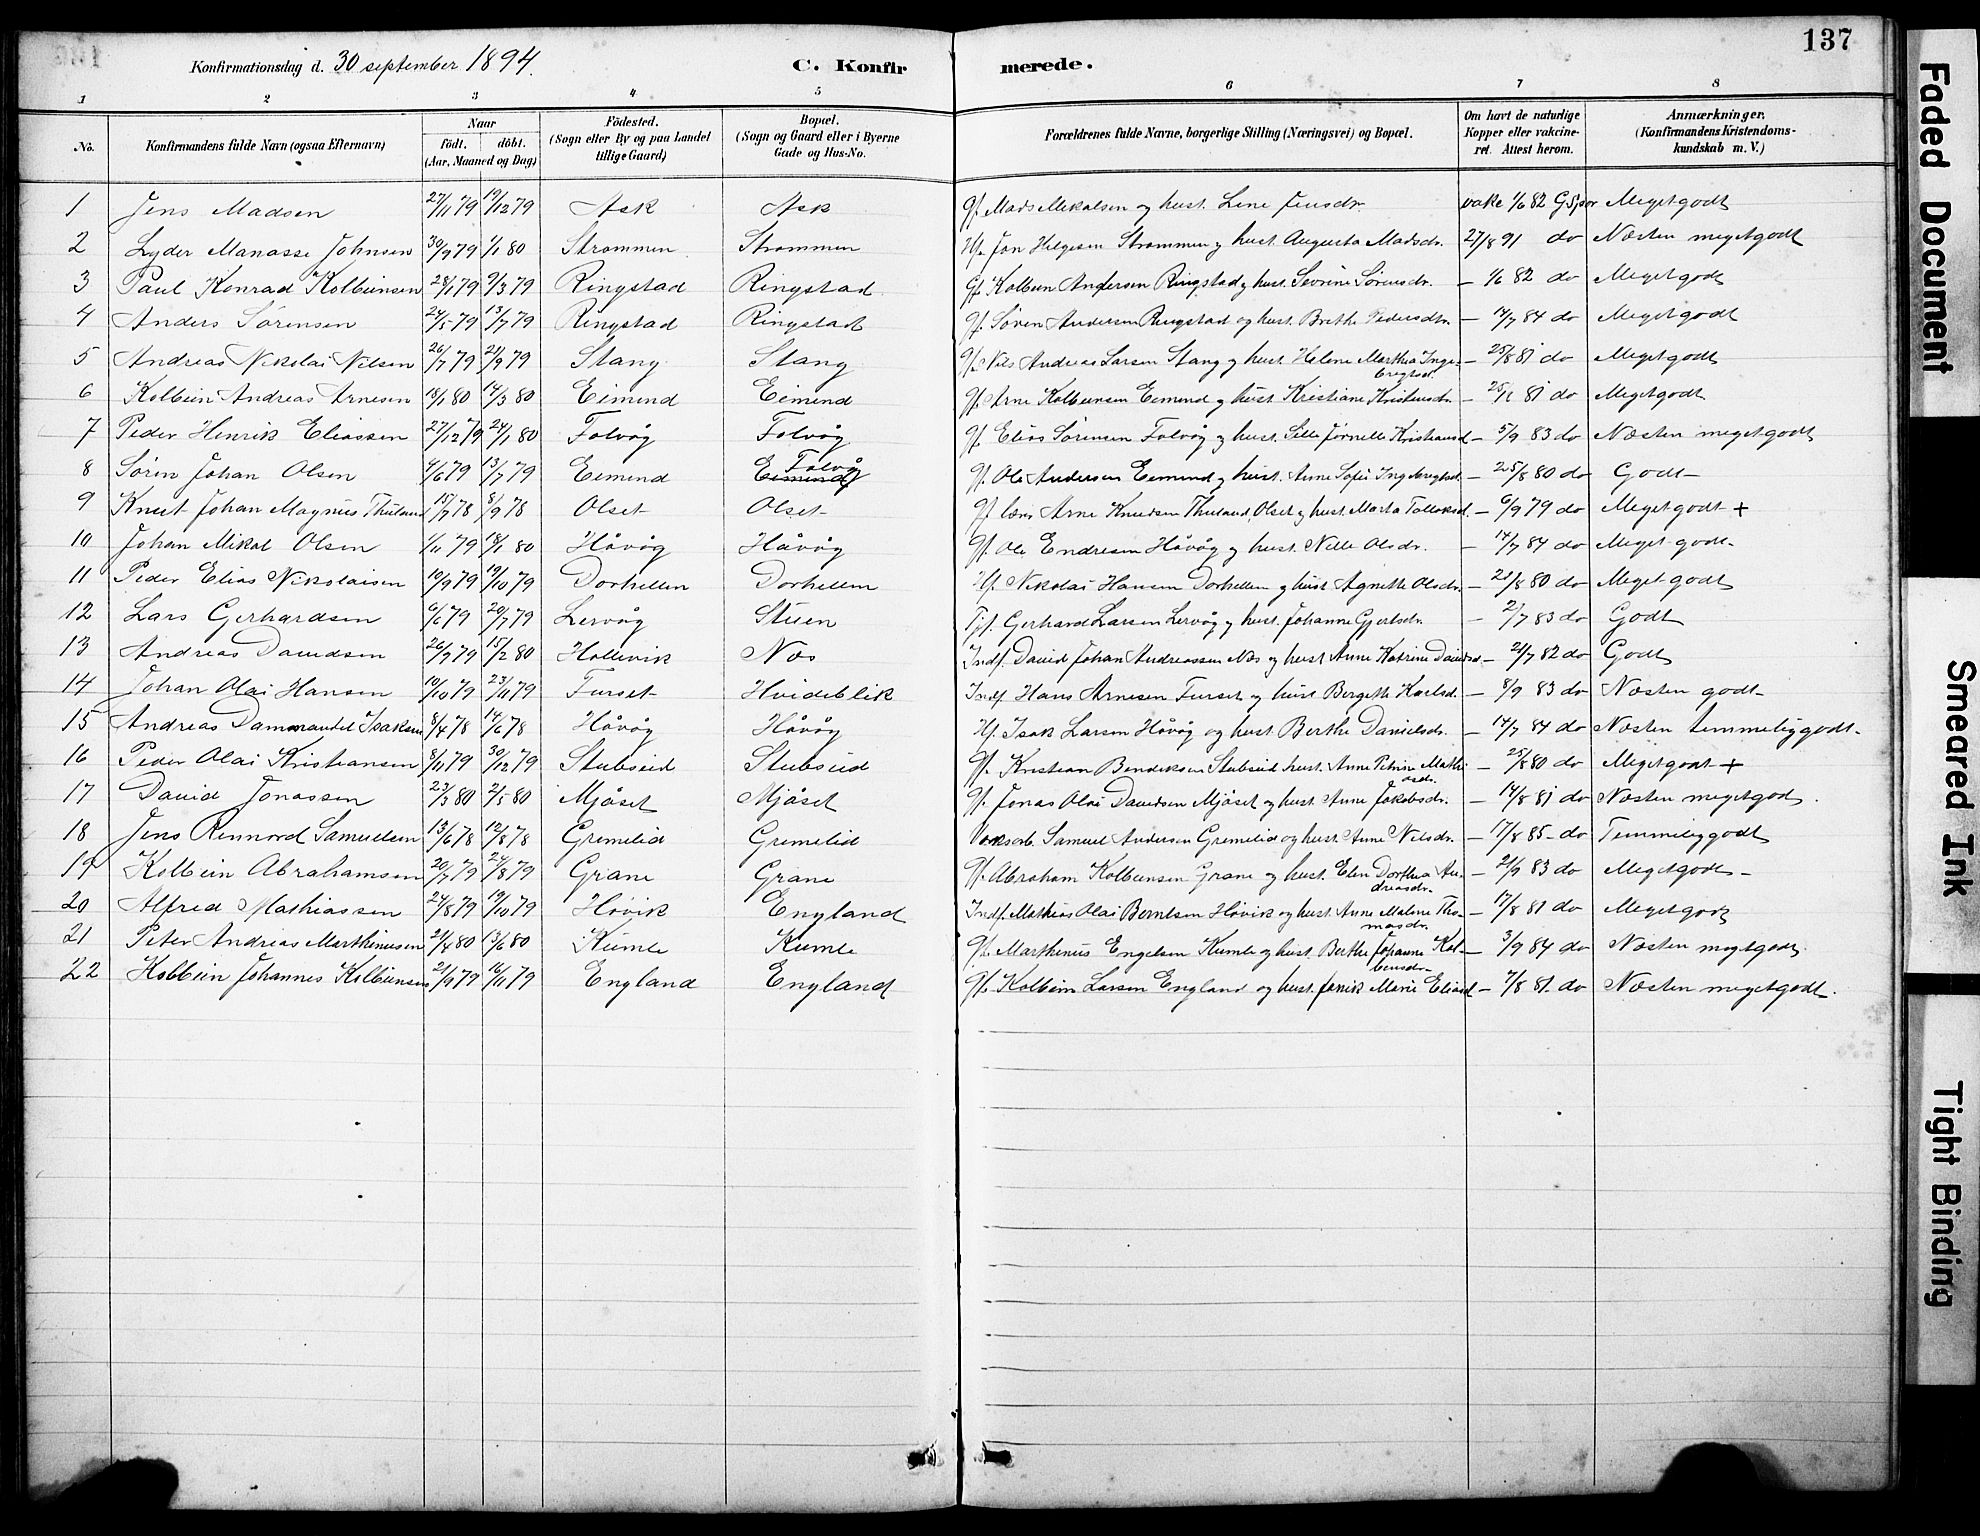 137
Konfirmationsdag d. 30 september 1894.
C. Konfirmerede.
1 2 3 4 5 6 7 8
No.
Konfirmandens fulde Navn (ogsaa Efternavn)
Naar
födt. döbt.
(Aar, Maaned og Dag)
Födested.
(Sogn eller By og paa Landet tillige Gaard)
Bopæl.
(Sogn og Gaard eller i Byerne Gade og Hus-No.
Forældrenes fulde Navne, borgerlige Stilling (Næringsvei) og Bopæl.
Om havt de naturlige Kopper eller vakcineret. Attest herom.
Anmærkninger.
(Konfirmandens Kristendomskundskab m. V.)
1 Jens Madsen 27/11 79 19/12 79 Ask Ask Gf. Mads Mikalsen og hust. Line Jensdr. vakc 1/6 82 G. Spor Megetgodt
2 Lyder Manasse Johnsen 30/9 79 1/1 80 Strømmen Strømmen Hf. Jon Helgesen Strømmen og hust. Augusta Madsdr. 27/8 91 do Næsten megetgodt
3 Paul Konrad Kolbeinsen 28/1 79 9/3 79 Ringstad Ringstad Gf. Kolbein Andersen Ringstad og hust. Sevrine Sörensdr. – 1/6 82 do Megetgodt
4 Anders Sörensen 24/5 79 13/7 79 Ringstad Ringstad Gf. Sören Andersen Ringstad og hust. Brethe Pedersdtr. – 14/7 84 do Megetgodt
5 Andreas Nikolai Nilsen 26/7 79 21/9 79 Stang Stang Gf. Nils Andreas Larsen Stang og hust. Helene Marthea Ingebregtsd. – 25/8 81 do Megetgodt
6 Kolbein Andreas Arnesen 18/1 80 14/3 80 Eimind Eimind Gf. Arne Kolbeinsen Eimind og hust Kristiane Kristensdr. – 81 do Megetgodt
7 Peder Henrik Eliassen 27/12 79 24/1 80 Folvåg Folvåg Gf. Elias Sörensen Folvåg og hust. Kristiansd – 5/9 83 do Næsten megetgodt
8 Sörin Johan Olsen 4/6 79 13/7 79 Eimind Folvåg Eimind Gf. Ole Andersen Eimund og hust. Anne Sofie Ingebregtsd. – 25/8 80 do Godt
9 Knut Johan Magnus Thuland 15/7 78 8/9 78 Olset Olset Arne Knudsen Thuland, Olset og hust. Marta – 6/9 79 do Megetgodt +
10 Johan Mikal Olsen 1/11 79 18/1 80 Håvåg Håvåg Gf. Ole Endresen Håvåg og hust. Nille Olsdr. – 14/7 84 do Meget godt.
11 Peder Elias Nikolaisen 10/9 79 19/10 79 Dorhellen Dorhellen Hf. Nikolai Hansen Dorhellen og hust Agnethe Olsdr. – 25/8 80 do Megetgodt
12 Lars Gerhardsen 6/6 79 20/7 79 Lervåg Stuen Gerhard Larsen Lervåg og hust. Johanne Gjertsdr. – 2/7 83 do Godt
13 Andreas Davidsen 26/9 79 15/2 80 Hollevik Næs Indf. David Johan Andreassen Næs og hust Anne Katrine Davidsd – 21/7 82 do Godt
14 Johan Olai Hansen 10/10 79 23/11 79 Furset Hvideblik Indf. Hans Arnesen Furset og hust Bergette Karlsd. – 8/9 83 do Næsten godt
15 Andreas Isaksen 8/4 78 14/6 78 Håvåg Håvåg Hf. Isak Larsen Håvåg og hust. Berthe Danielsdr. – 14/7 84 do Næsten temmeliggodt.
16 Peder Olai Kristiansen 8/11 79 30/12 79 Stubseid Stubseid Gf. Kristian Bendiksen Stubseid hust. Anne Petrine Mathiasdr. – 25/8 80 do Megetgodt +
17 David Jonassen 23/3 80 2/5 80 Mjåset Mjåset Gf. Jonas Olai Davidsen Mjåset og hust. Anne Jakobsdr. – 14/8 81 do Næsten megetgodt.
18 Jens Samuelsen 13/6 78 12/8 78 Gremelid Gremelid Samuel Andersen Gremelid og hust. Anne Nilsdr. – 17/8 85 do Temmeliggodt
19 Kolbein Abrahamsen 20/7 79 24/8 79 Grane Grane Gf. Abraham Kolbeinsen Grane og hust. Elen Dorthea Andreasdr. – 21/9 83 do Megetgodt
20 Alfred Mathiassen 24/8 79 19/10 79 Håvik England Indf. Mathias Olai Berntsen Håvik og hust. Anne Malene Thomasdr. – 17/8 81 do Megetgodt
21 Peter Andreas Marthinusen 21/4 80 13/6 80 Kumle Kumle Gf. Marthinus Engelsen Kumle og hust. Berthe Johanne Kolbensdr. – 3/9 84 do Næsten megtgodt.
22 Kolbein Johannes Kolbeinsen 21/9 79 16/11 79 England England Gf. Kolbein Larsen England og hust. Marie Eliasd – 7/8 81 do Næsten megetgodt.
Faded Document
Smeared Ink
Tight Binding